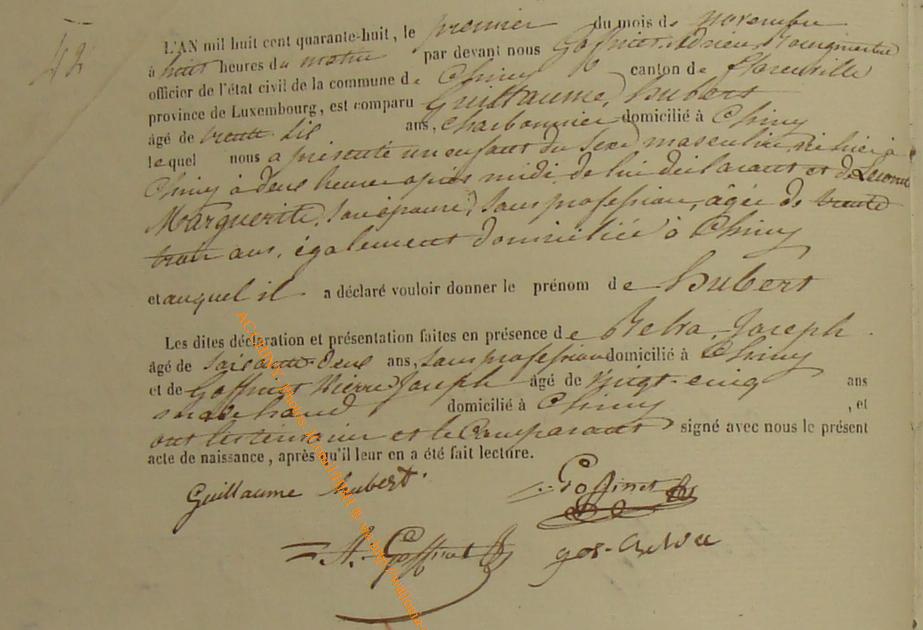 42
L'AN mil huit cent quarante-huit, le premier du mois de novembre
à huit heures du matin par devant nous Goffinet Adrien, Bourgmestre
officier de l'état civil de la commune de Chiny canton de Florenville
province de Luxembourg, est comparu Guillaume, Hubert
âgé de trente six ans, charbonnier domicilié à Chiny
lequel nous a présenté un enfant du sexe masculin, né hier à
Chiny à deux heures après midi, de lui déclarant et de Lecomte
Marguerite, son épouse, sans profession, âgée de trente
trois ans, également domiciliée à Chiny
et auquel il a déclaré vouloir donner le prénom de Hubert
Les dites déclaration et présentation faites en présence de Joseph
âgé de soixante-deux ans, sans profession domicilié à Chiny
et de Goffinet Pierre Joseph âgé de vingt-cinq ans
marchand domicilié à Chiny, et
ont les témoins et le Comparant signé avec nous le présent
acte de naissance, après qu'il leur en a été fait lecture.
Guillaume hubert. Goffinet
A. Goffinet